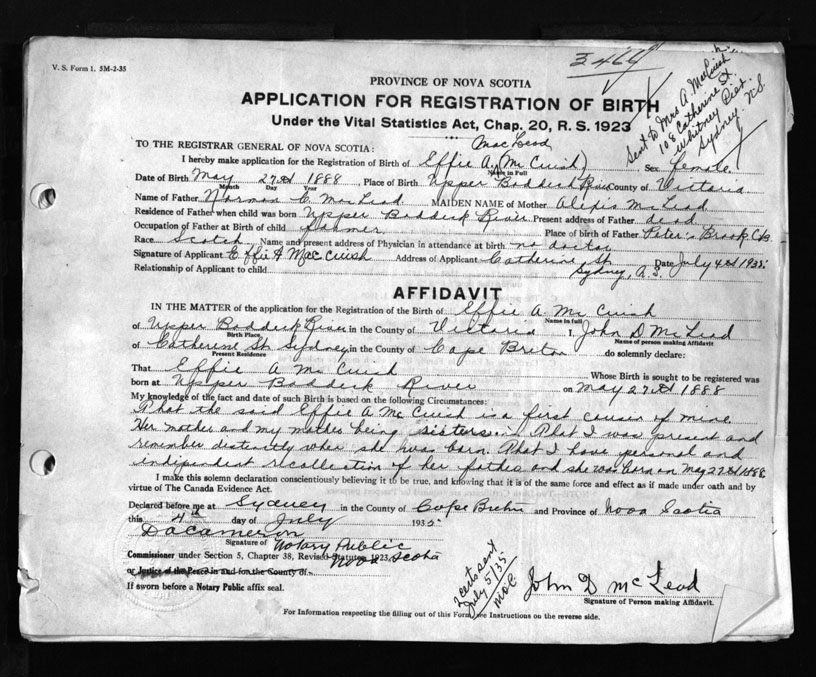 V. S. Form 1. 5M-2-35
3464
Sent to Mrs A. MacCuish
108 Catherine St.
Whitney Pier
Sydney N.S.
PROVINCE OF NOVA SCOTIA
APPLICATION FOR REGISTRATION OF BIRTH
Under the Vital Statistics Act, Chap. 20, R. S. 1923
TO THE REGISTRAR GENERAL OF NOVA SCOTIA:
MacLeod
I hereby make application for the Registration of Birth of Effie A. (Mc Cuish) Sex female
Name in Full
Date of Birth May 27th 1888, Place of Birth Upper Baddeck River County of Victoria
Month Day Year
Name of Father Norman C. McLeod MAIDEN NAME of Mother Alexis McLeod
Residence of Father when child was born Upper Baddeck River Present address of Father dead
Occupation of Father at Birth of child Farmer Place of birth of Father Peter's Brook C.B.
Race Scotch Name and present address of Physician in attendance at birth no doctor
Signature of Applicant Effie A MacCuish Address of Applicant Catherine St Date July 4th 1935
Relationship of Applicant to child Sydney, N.S.
AFFIDAVIT
IN THE MATTER of the application for the Registration of the Birth of Effie A. Mc Cuish
Name in full
of Upper Baddeck River in the County of Victoria I, John D McLeod
Birth Place Name of person making Affidavit
of Catherine St. Sydney in the County of Cape Breton do solemnly declare:
Present Residence
That Effie A Mc Cuish Whose Birth is sought to be registered was
born at Upper Baddeck River on May 27th 1888
My knowledge of the fact and date of such Birth is based on the following Circumstances:
That the said Effie A. McCuish is a first cousin of mine.
Her mother and my mother being sisters. That I was present and
remember distinctly when she was born. That I have personal and
independent recollection of her father and she was born on May 27th 1888
I make this solemn declaration conscientiously believing it to be true, and knowing that it is of the same force and effect as if made under oath and by
virtue of The Canada Evidence Act.
Declared before me at Sydney in the County of Cape Breton and Province of Nova Scotia
this 4th day of July 1935
D A Cameron
Signature of Notary Public
Commissioner under Section 5, Chapter 38, Revised Statutes 1923, Nova Scotia
or Justice of the Peace in and for the County of
If sworn before a Notary Public affix seal.
2 certs sent
July 5/35
John D McLeod
Signature of Person making Affidavit.
For Information respecting the filling out of this Form see Instructions on the reverse side.